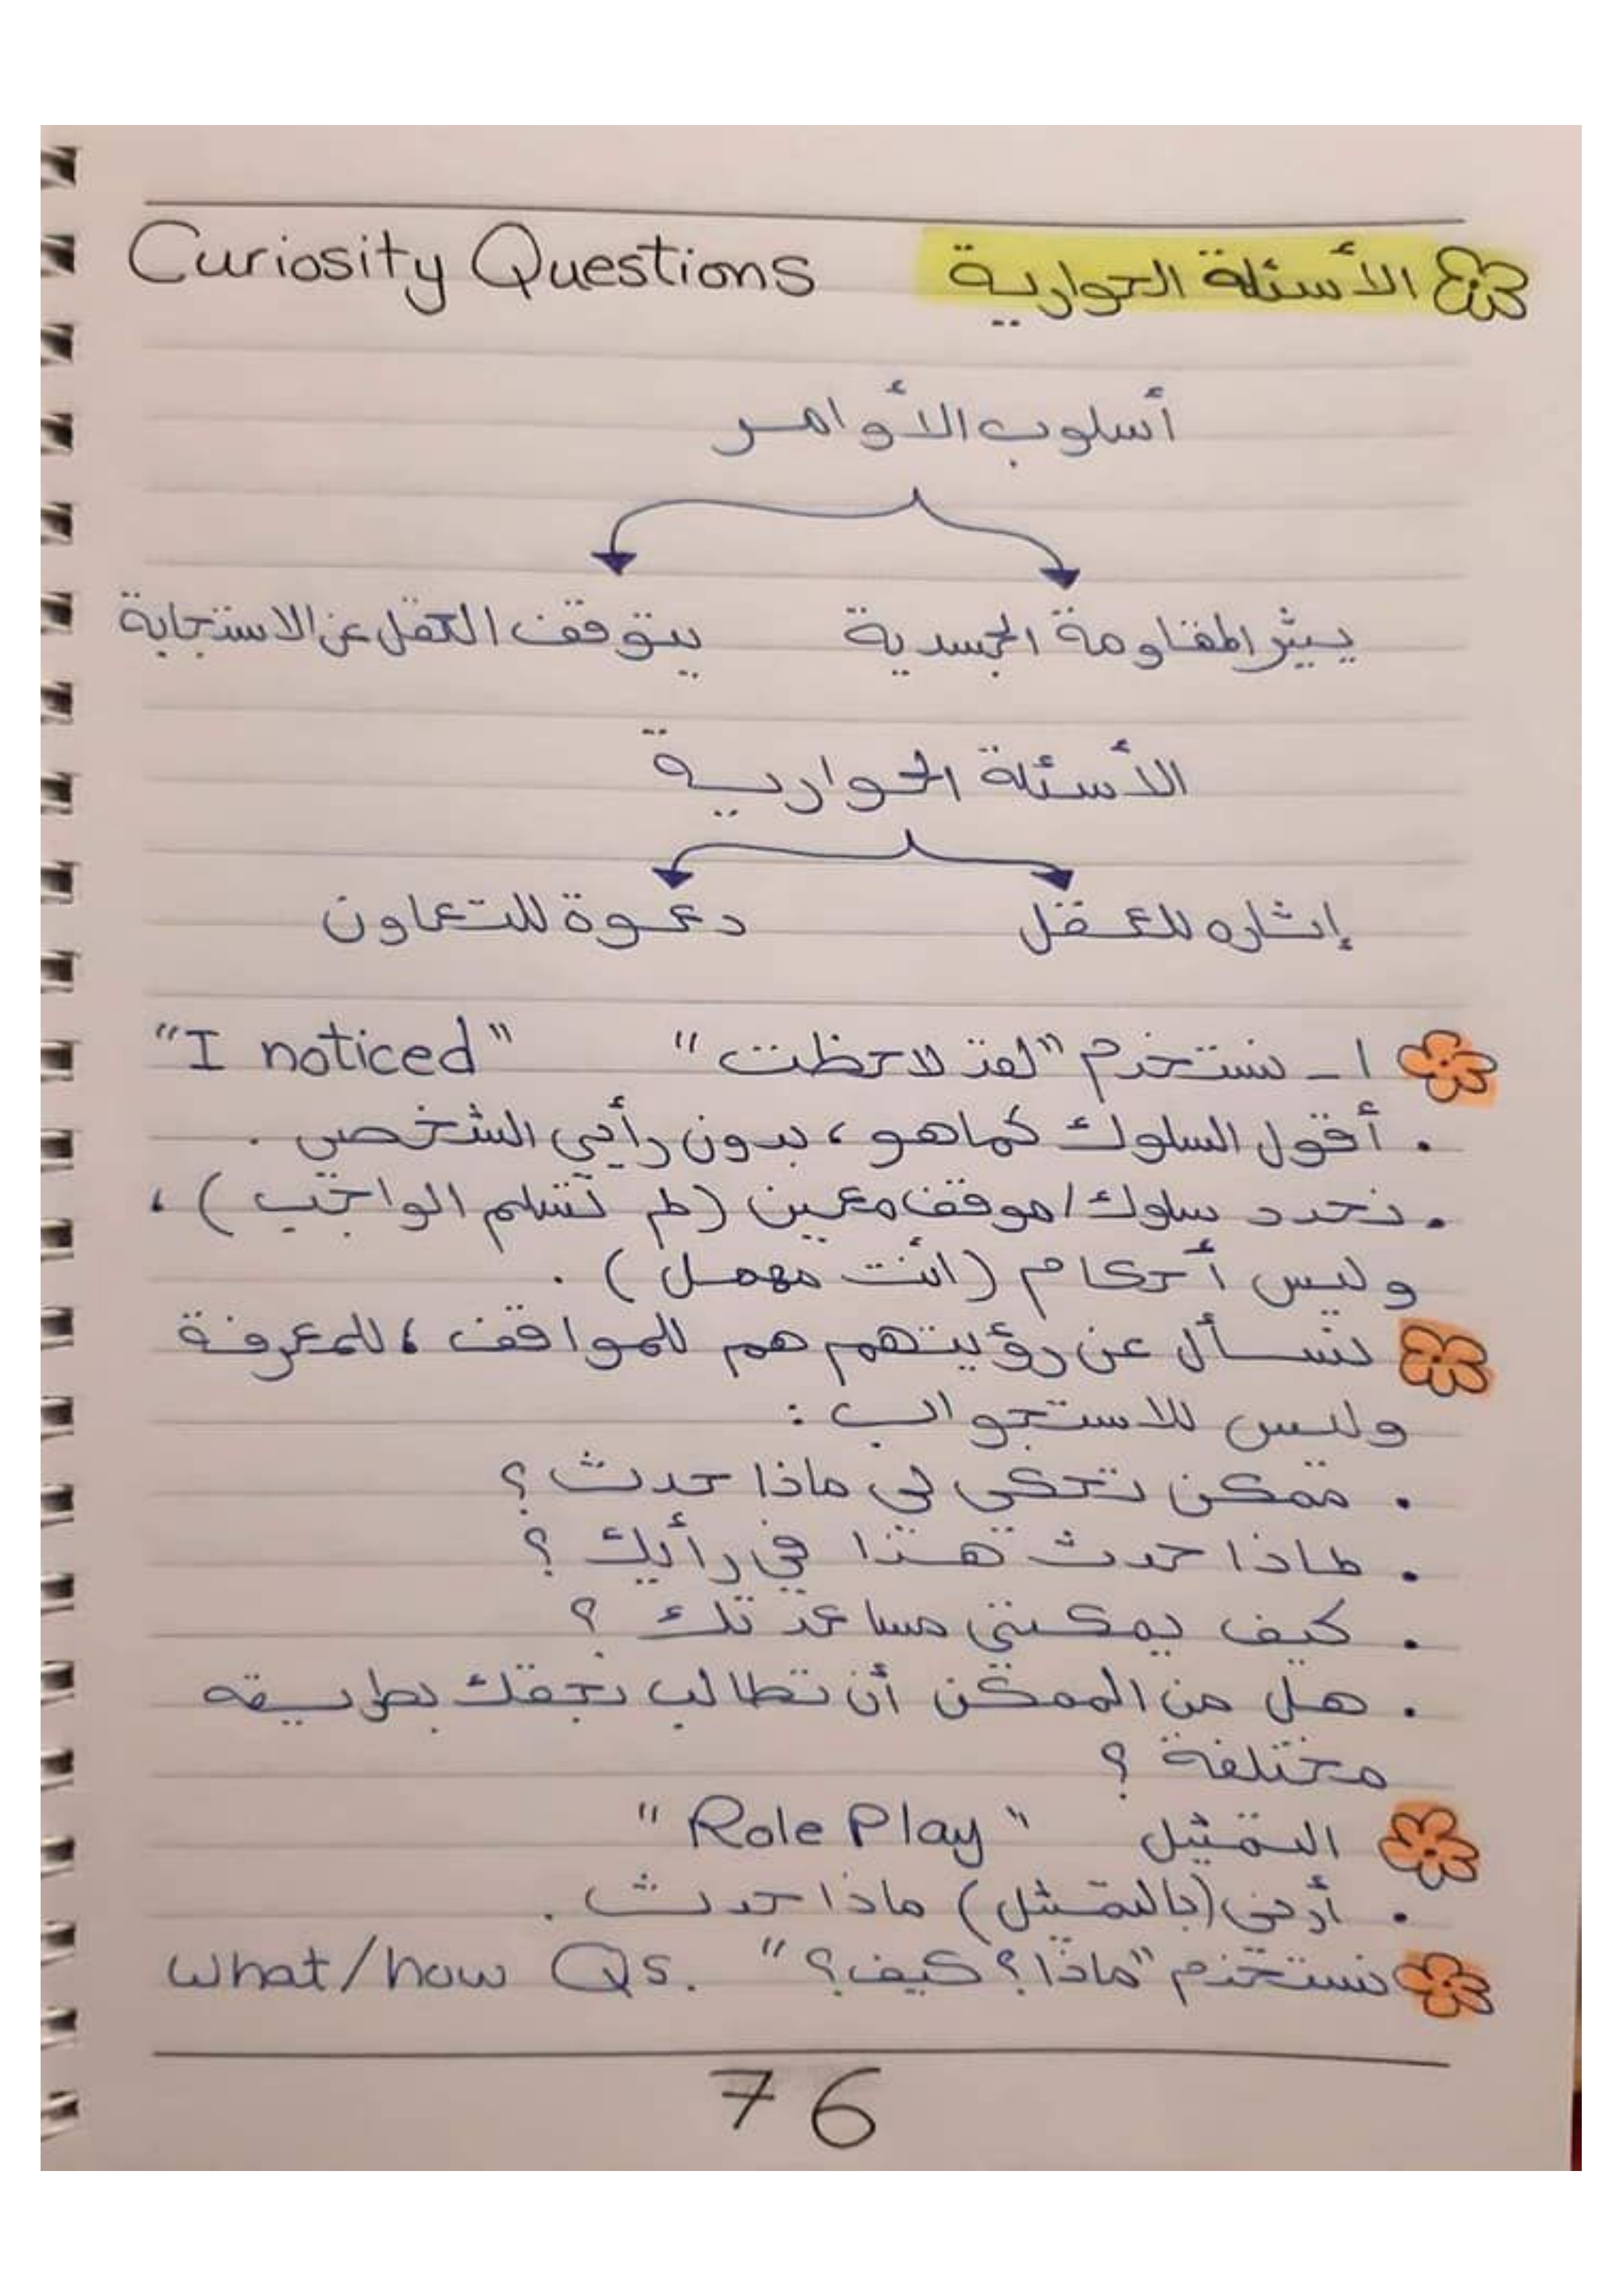 الأسئلة الحوارية Curiosity Questions
أسلوب الأوامر
يثير المقاومة الجسدية يتوقف العقل عن الاستجابة
الأسئلة الحوارية
إثاره للعقل دعوة للتعاون
١ - نستخدم "لقد لاحظت" "I noticed"
. أقول السلوك كما هو، بدون رأيي الشخصي .
. نحدد سلوك/موقف معين (لم تسلم الواجب)،
وليس أحكام (أنت مهمل) .
نسأل عن رؤيتهم هم للمواقف، للمعرفة
وليس للاستجواب :
. ممكن تحكي لي ماذا حدث ؟
. لماذا حدث هذا في رأيك ؟
. كيف يمكنني مساعدتك ؟
. هل من الممكن أن تطالب بحقك بطريقه
مختلفة ؟
التمثيل "Role Play"
. أرني (بالتمثيل) ماذا حدث .
نستخدم "ماذا؟ كيف؟" What/how Qs.
76